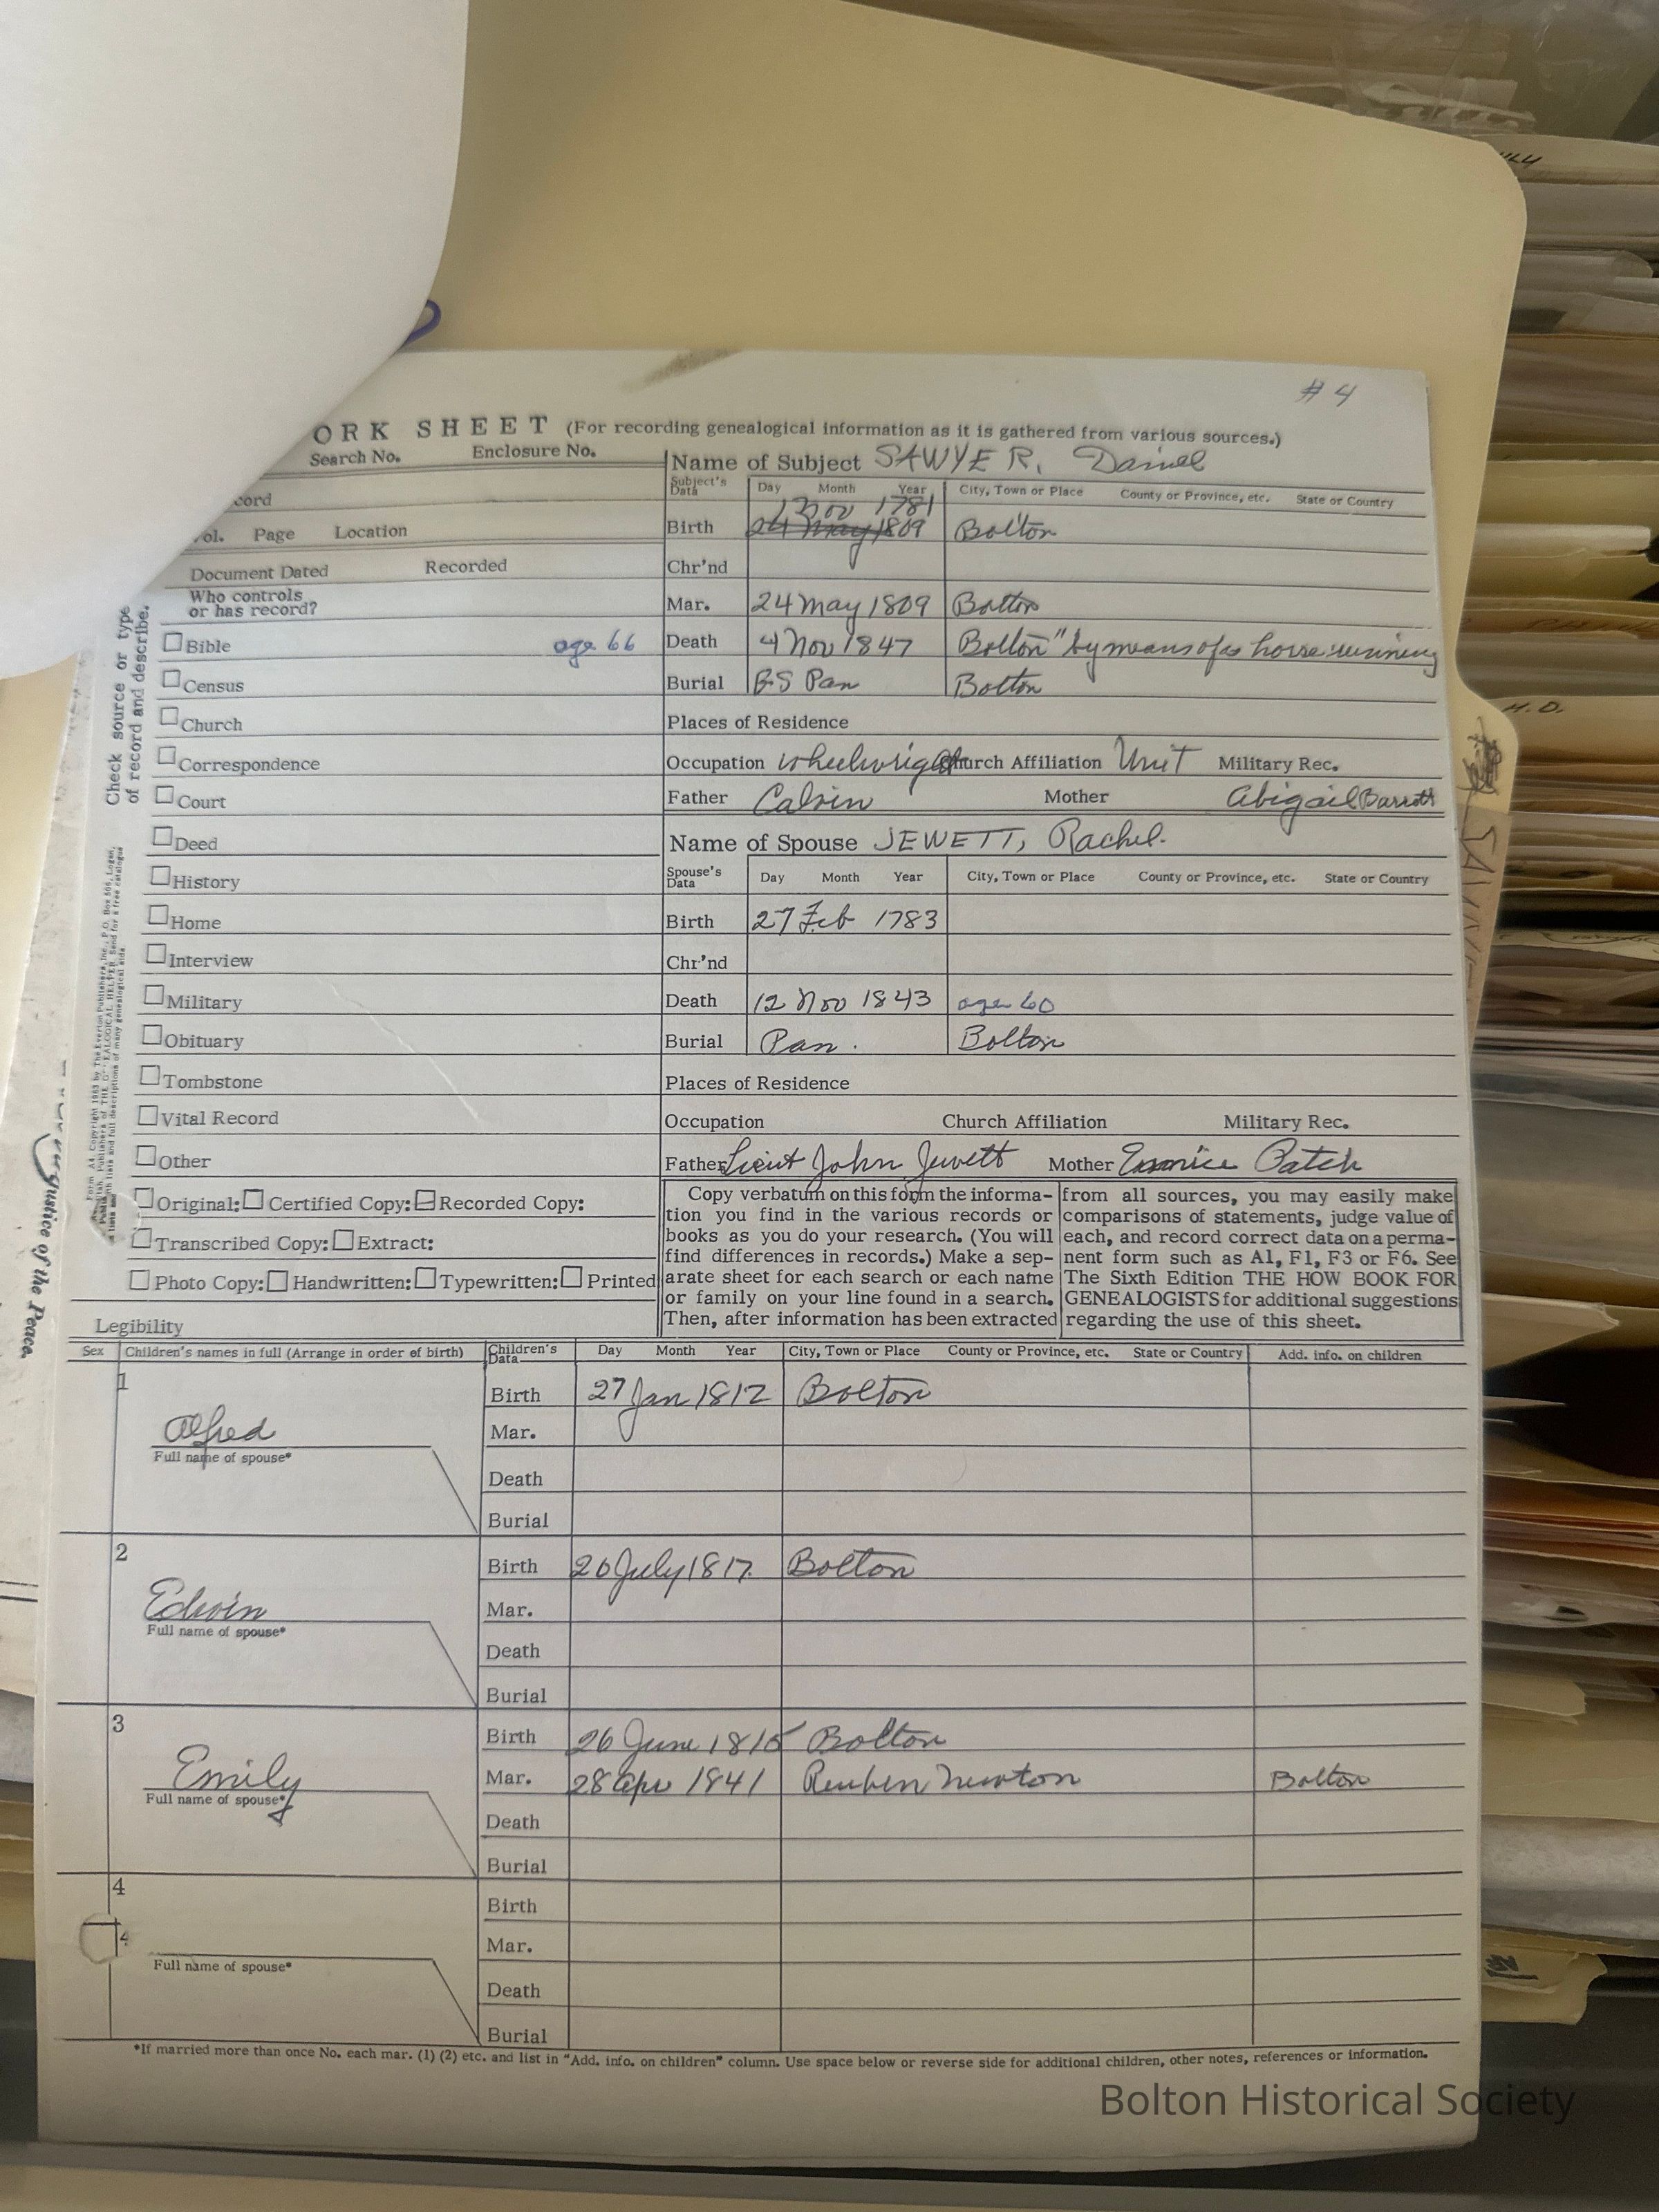 # 4
ORK SHEET (For recording genealogical information as it is gathered from various sources.)
Search No. Enclosure No.
Name of Subject SAWYER, Daniel
cord
Subject's Data Day Month Year City, Town or Place County or Province, etc. State or Country
Nov 1781
Birth 24 May 1809 Bolton
ol. Page Location
Chr'nd
Document Dated Recorded
Who controls or has record?
Mar. 24 May 1809 Bolton
Check source or type of record and describe.
Bible age 66
Death 4 Nov 1847 Bolton "by means of a horse running
Census
Burial Pan Bolton
Church
Places of Residence
Correspondence
Occupation wheelwright Church Affiliation Unit Military Rec.
Court
Father Calvin Mother Abigail Barrett
Deed
Name of Spouse JEWETT, Rachel.
History
Spouse's Data Day Month Year City, Town or Place County or Province, etc. State or Country
Home
Birth 27 Feb 1783
Interview
Chr'nd
Military
Death 12 Nov 1843 age 60
Obituary
Burial Pan. Bolton
Tombstone
Places of Residence
Vital Record
Occupation Church Affiliation Military Rec.
Other
Father Lieut John Jewett Mother Eunice Patch
Original: Certified Copy: Recorded Copy:
Transcribed Copy: Extract:
Photo Copy: Handwritten: Typewritten: Printed
Legibility
Copy verbatum on this form the informa-
tion you find in the various records or
books as you do your research. (You will
find differences in records.) Make a sep-
arate sheet for each search or each name
or family on your line found in a search.
Then, after information has been extracted
from all sources, you may easily make
comparisons of statements, judge value of
each, and record correct data on a perma-
nent form such as A1, F1, F3 or F6. See
The Sixth Edition THE HOW BOOK FOR
GENEALOGISTS for additional suggestions
regarding the use of this sheet.
Sex Children's names in full (Arrange in order of birth) Children's Data Day Month Year City, Town or Place County or Province, etc. State or Country Add. info. on children
1
Birth 27 Jan 1812 Bolton
Alfred
Mar.
Full name of spouse*
Death
Burial
2
Birth 20 July 1817 Bolton
Edwin
Mar.
Full name of spouse*
Death
Burial
3
Birth 26 June 1815 Bolton
Emily
Mar. 28 Apr 1841 Reuben Newton Bolton
Full name of spouse*
Death
Burial
4
Birth
4
Mar.
Full name of spouse*
Death
Burial
*If married more than once No. each mar. (1) (2) etc. and list in "Add. info. on children" column. Use space below or reverse side for additional children, other notes, references or information.
Justice of the Peace.
H.D.
Bolton Historical Society